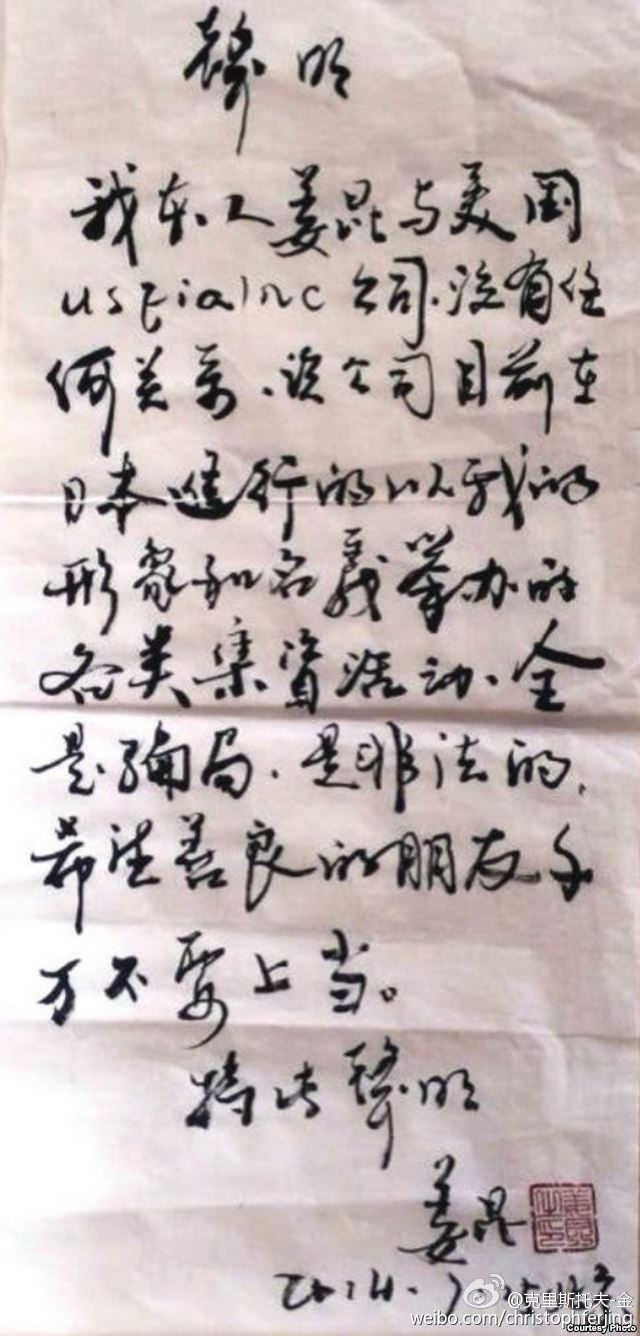 聲明
我本人姜昆与美国
usFiaInc公司.没有任
何关系.该公司目前在
日本進行的以我的
形象和名義举办的
各类集資活动.全
是骗局.是非法的,
希望善良的朋友千
万不要上当。
特此聲明
姜昆
2014.7
@克里斯托夫-金
weibo.com/christophferjing
Courtesy Photo